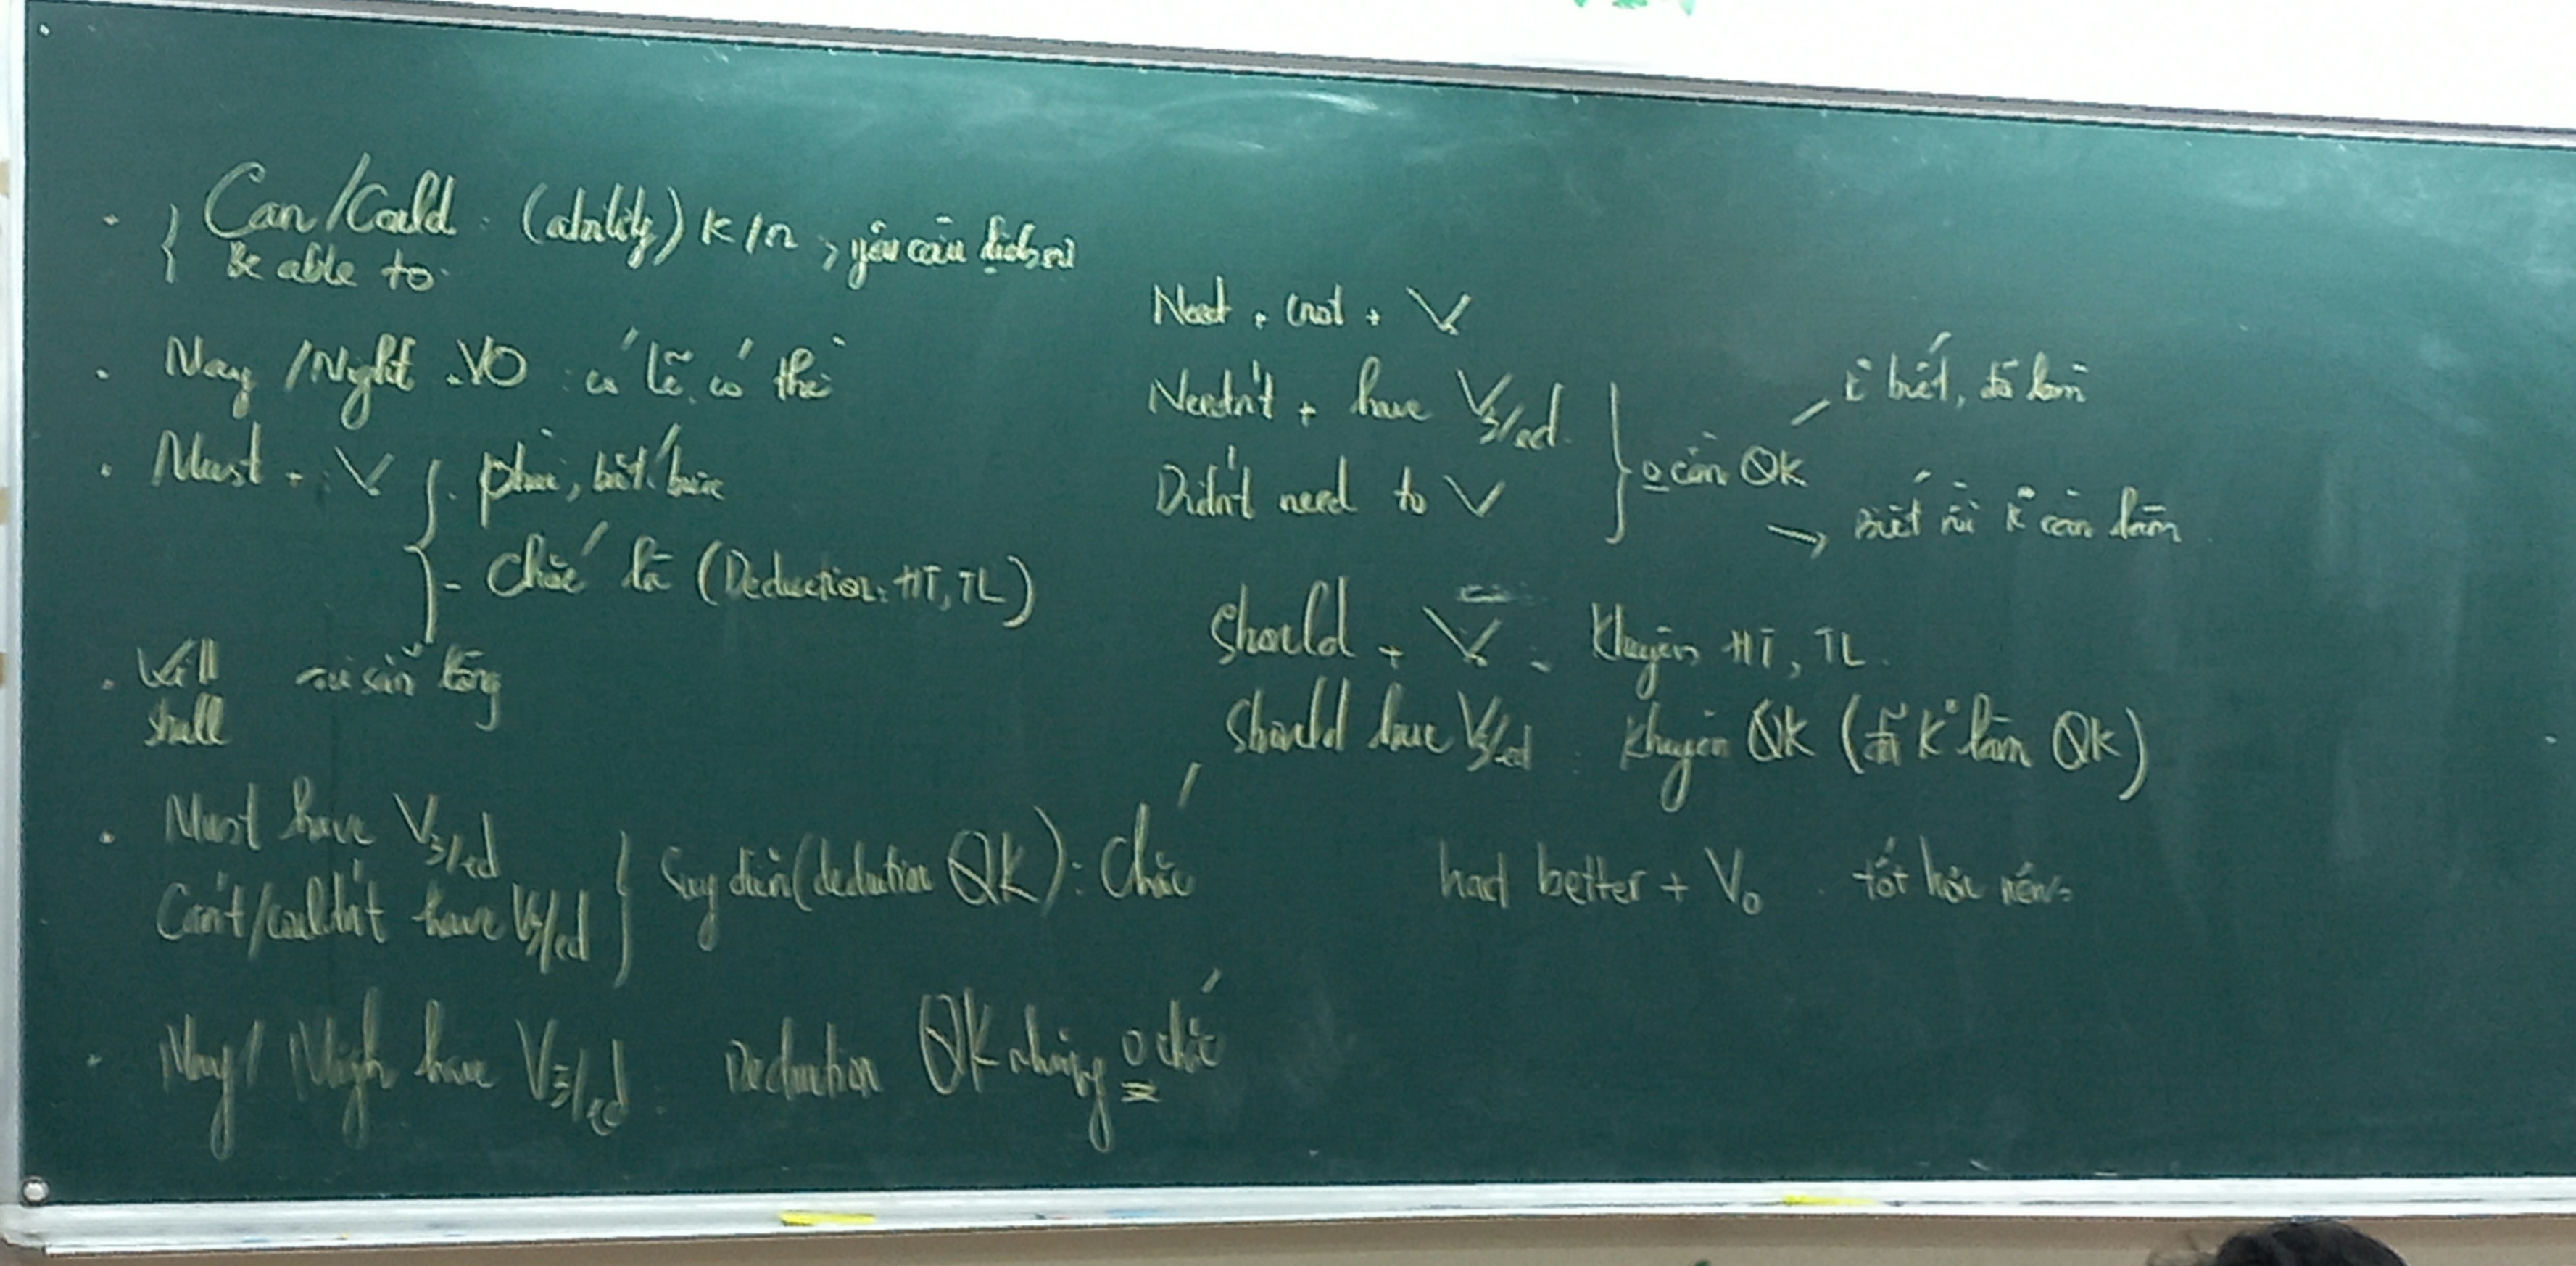 Can/Could : (ability) K/n , yêu cầu lịch sự
Be able to
May /Might + V0 : có lẽ, có thể
Must + V { - phải, bắt buộc
- chắc là (Deduction: HT, TL)
Will sự sẵn lòng
shall
Must have V3/ed
Can't/couldn't have V3/ed } Suy diễn (deduction QK): Chắc
May/ Migh have V3/ed Deduction QK nhưng 0 chắc
Need + (not + V
Needn't + have V3/ed
Didn't need to V
} 0 cần QK
K biết, đã làm
→ Biết rồi K cần làm
Should + V : Khuyên HT, TL.
Should have V3/ed : Khuyên QK (đã K làm QK)
had better + V0 tốt hơn nên